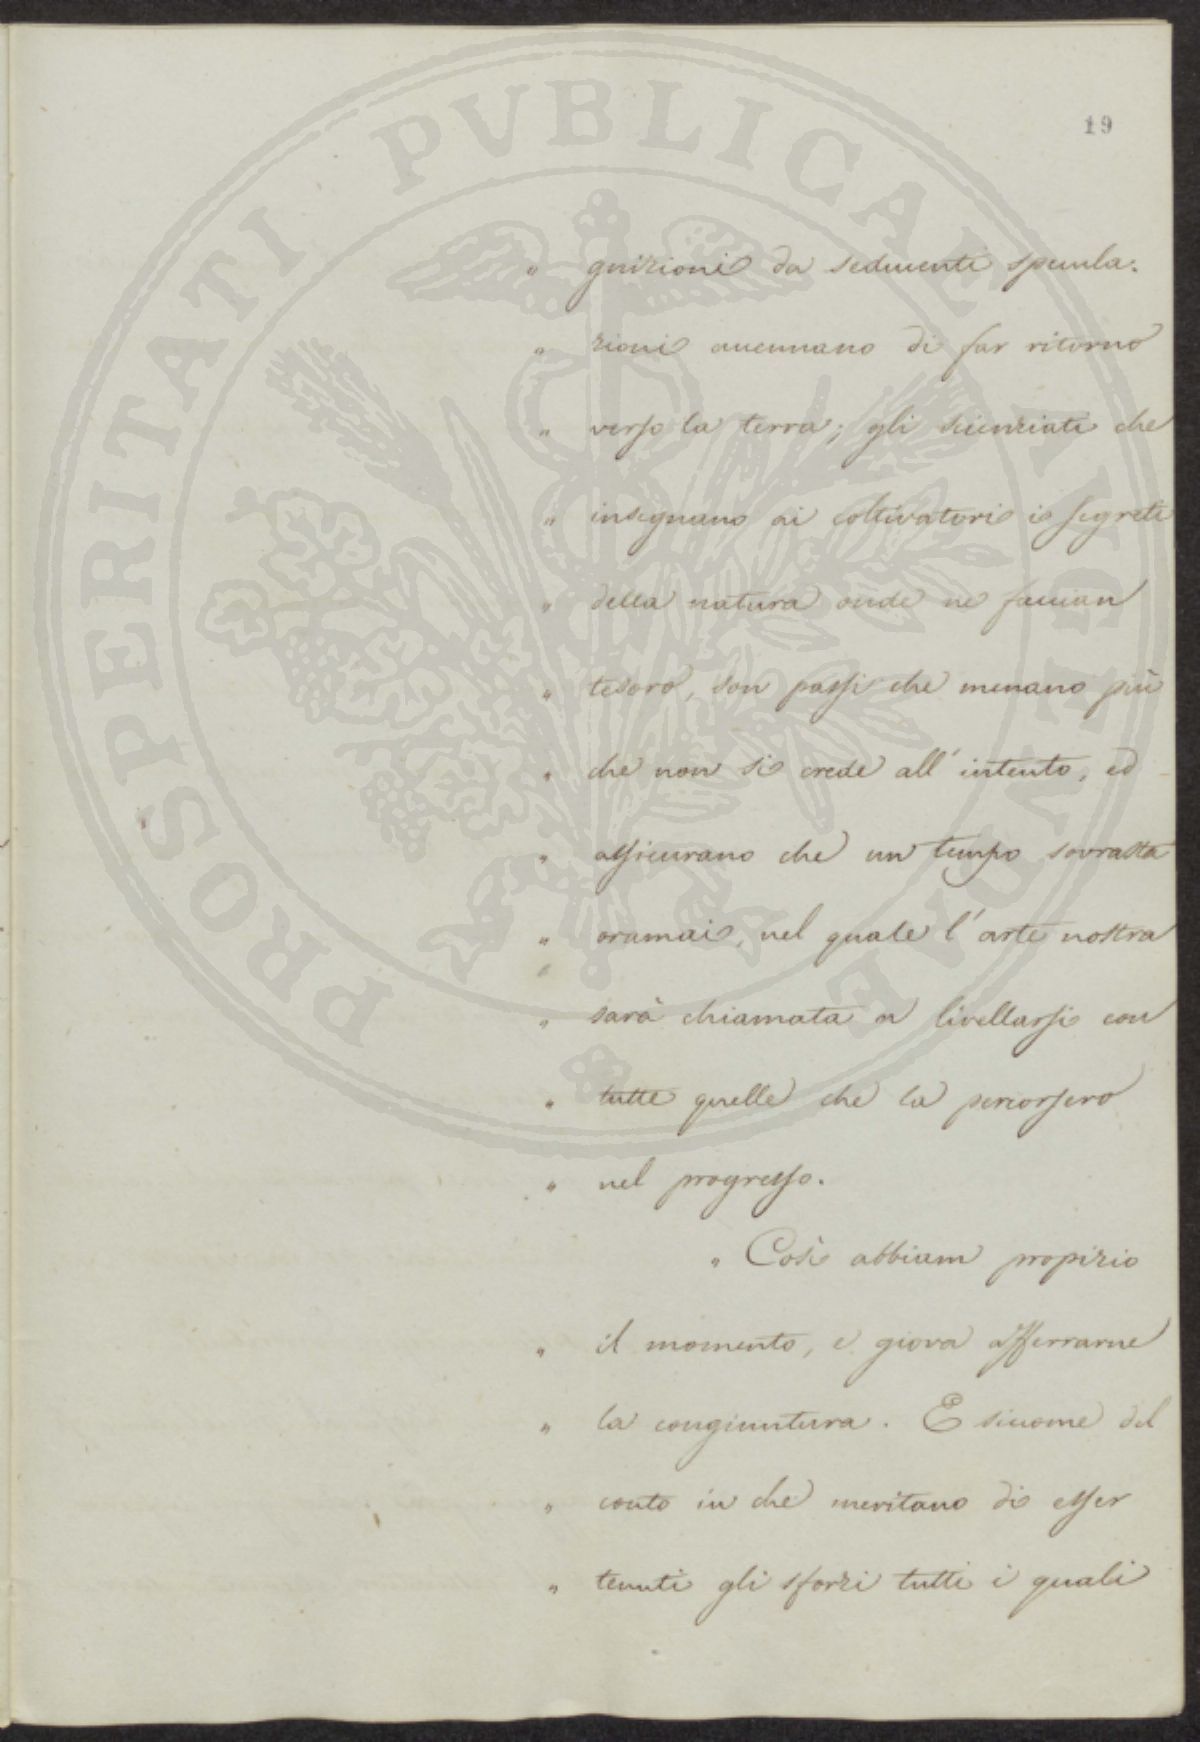 PROSPERITATI PVBLICAE AVGENDAE
19
" guizioni da seducenti specula:
" zioni accennano di far ritorno
" verso la terra; gli scienziati che
" insegnano ai coltivatori i segreti
" della natura onde ne faccian
" tesoro, son passi che menano più
" che non si crede all'intento, ed
" assicurano che un tempo sovrasta
" oramai, nel quale l'arte nostra
" sarà chiamata a livellarsi con
" tutte quelle che la percorsero
" nel progresso.
" Così abbiam propizio
" il momento, e giova afferrarne
" la congiuntura. E siccome del
" conto in che meritano di esser
" tenuti gli sforzi tutti i quali